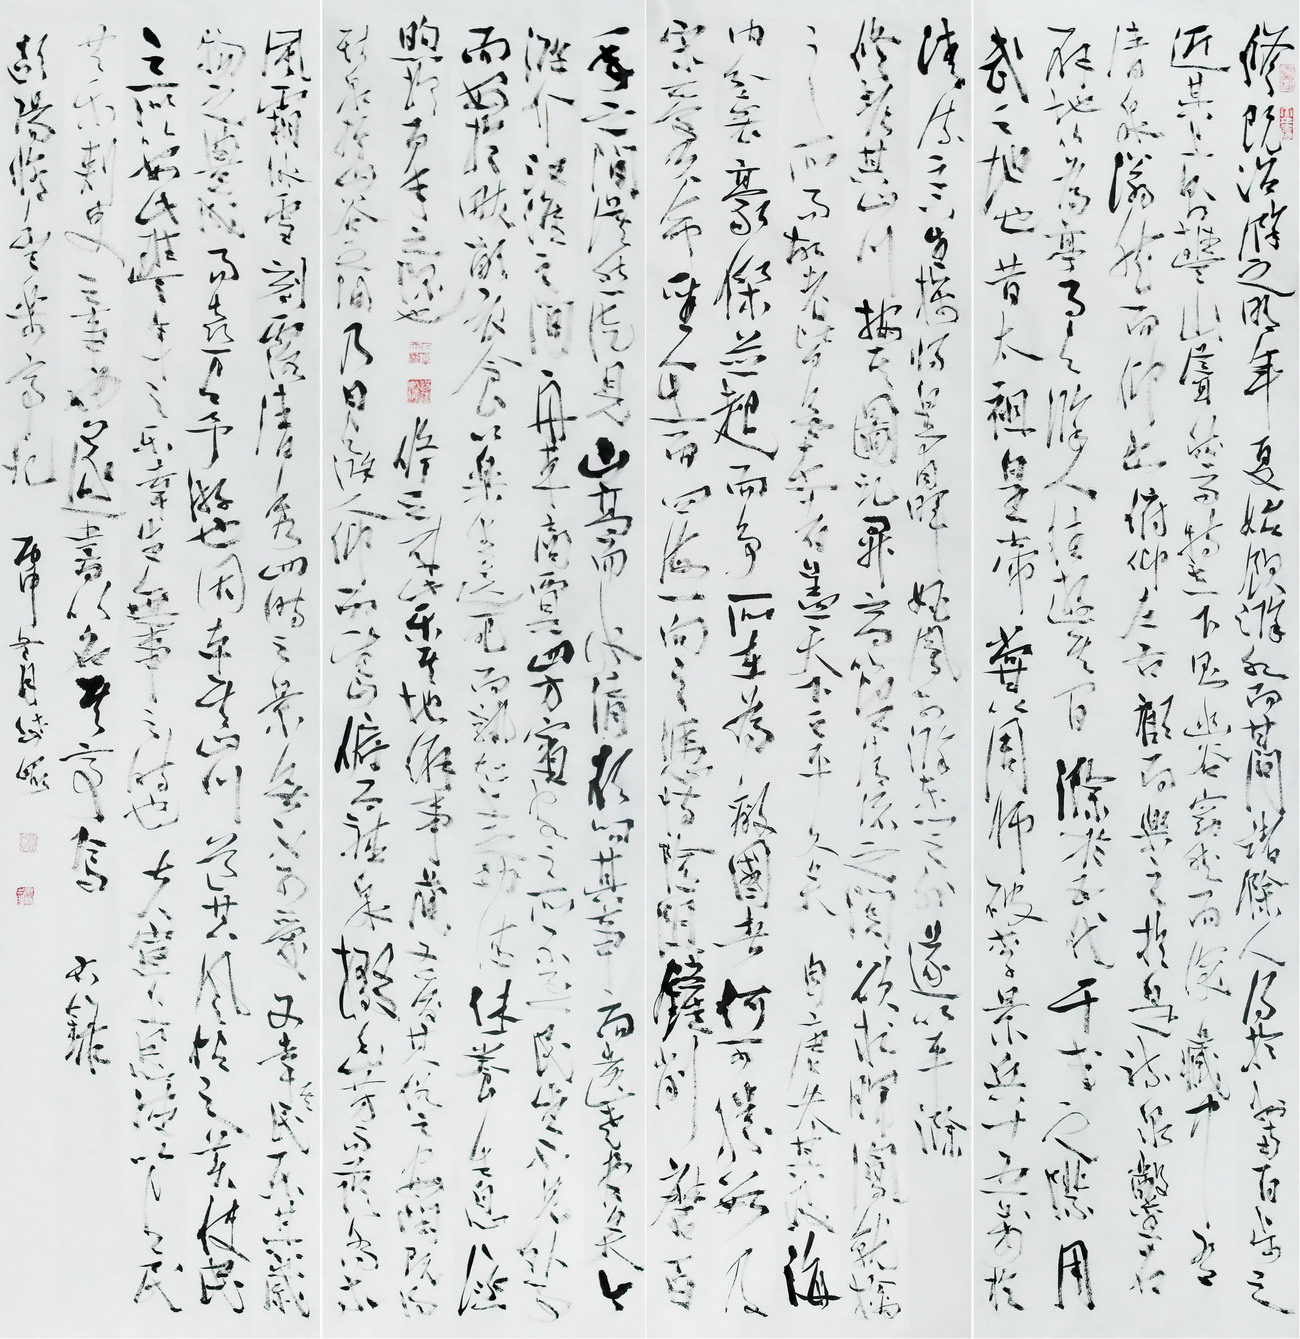 修既治滁之明年夏始飲滁水而甘問諸滁人得於州南百步之
近其上則豐山聳然而特立下則幽谷窈然而深藏中有
清泉滃然而仰出俯仰左右顧而樂之於是疏泉鑿石
闢地以為亭而與滁人往遊其間滁於五代干戈之際用
武之地也昔太祖皇帝嘗以周師破李景兵十五萬於
清流山下生擒其將皇甫暉姚鳳於滁東門之外遂以平滁
修嘗考其山川按其圖記升高以望清流之關欲求暉鳳就擒
之所而故老皆無在者蓋天下之平久矣自唐失其政海
內分裂豪傑並起而爭所在為敵國者何可勝數及
宋受天命聖人出而四海一向之憑恃險阻剷削消磨百
年之間漠然徒見山高而水清欲問其事而遺老盡矣今
滁介江淮之間舟車商賈四方賓客之所不至民生不見外事
而安於畎畝衣食以樂生送死而孰知上之功德休養生息涵
煦於百年之深也修之來此樂其地僻而事簡又愛其俗之安閒既得
斯泉於山谷之間乃日與滁人仰而望山俯而聽泉掇幽芳而蔭喬木
風霜冰雪刻露清秀四時之景無不可愛又幸其民樂其歲
物之豐成而喜與予遊也因為本其山川道其風俗之美使民
知所以安此豐年之樂者幸生無事之時也夫宣上恩德以與民
共樂刺史之事也遂書以名其亭焉 右錄
歐陽修豐樂亭記 丙申冬月